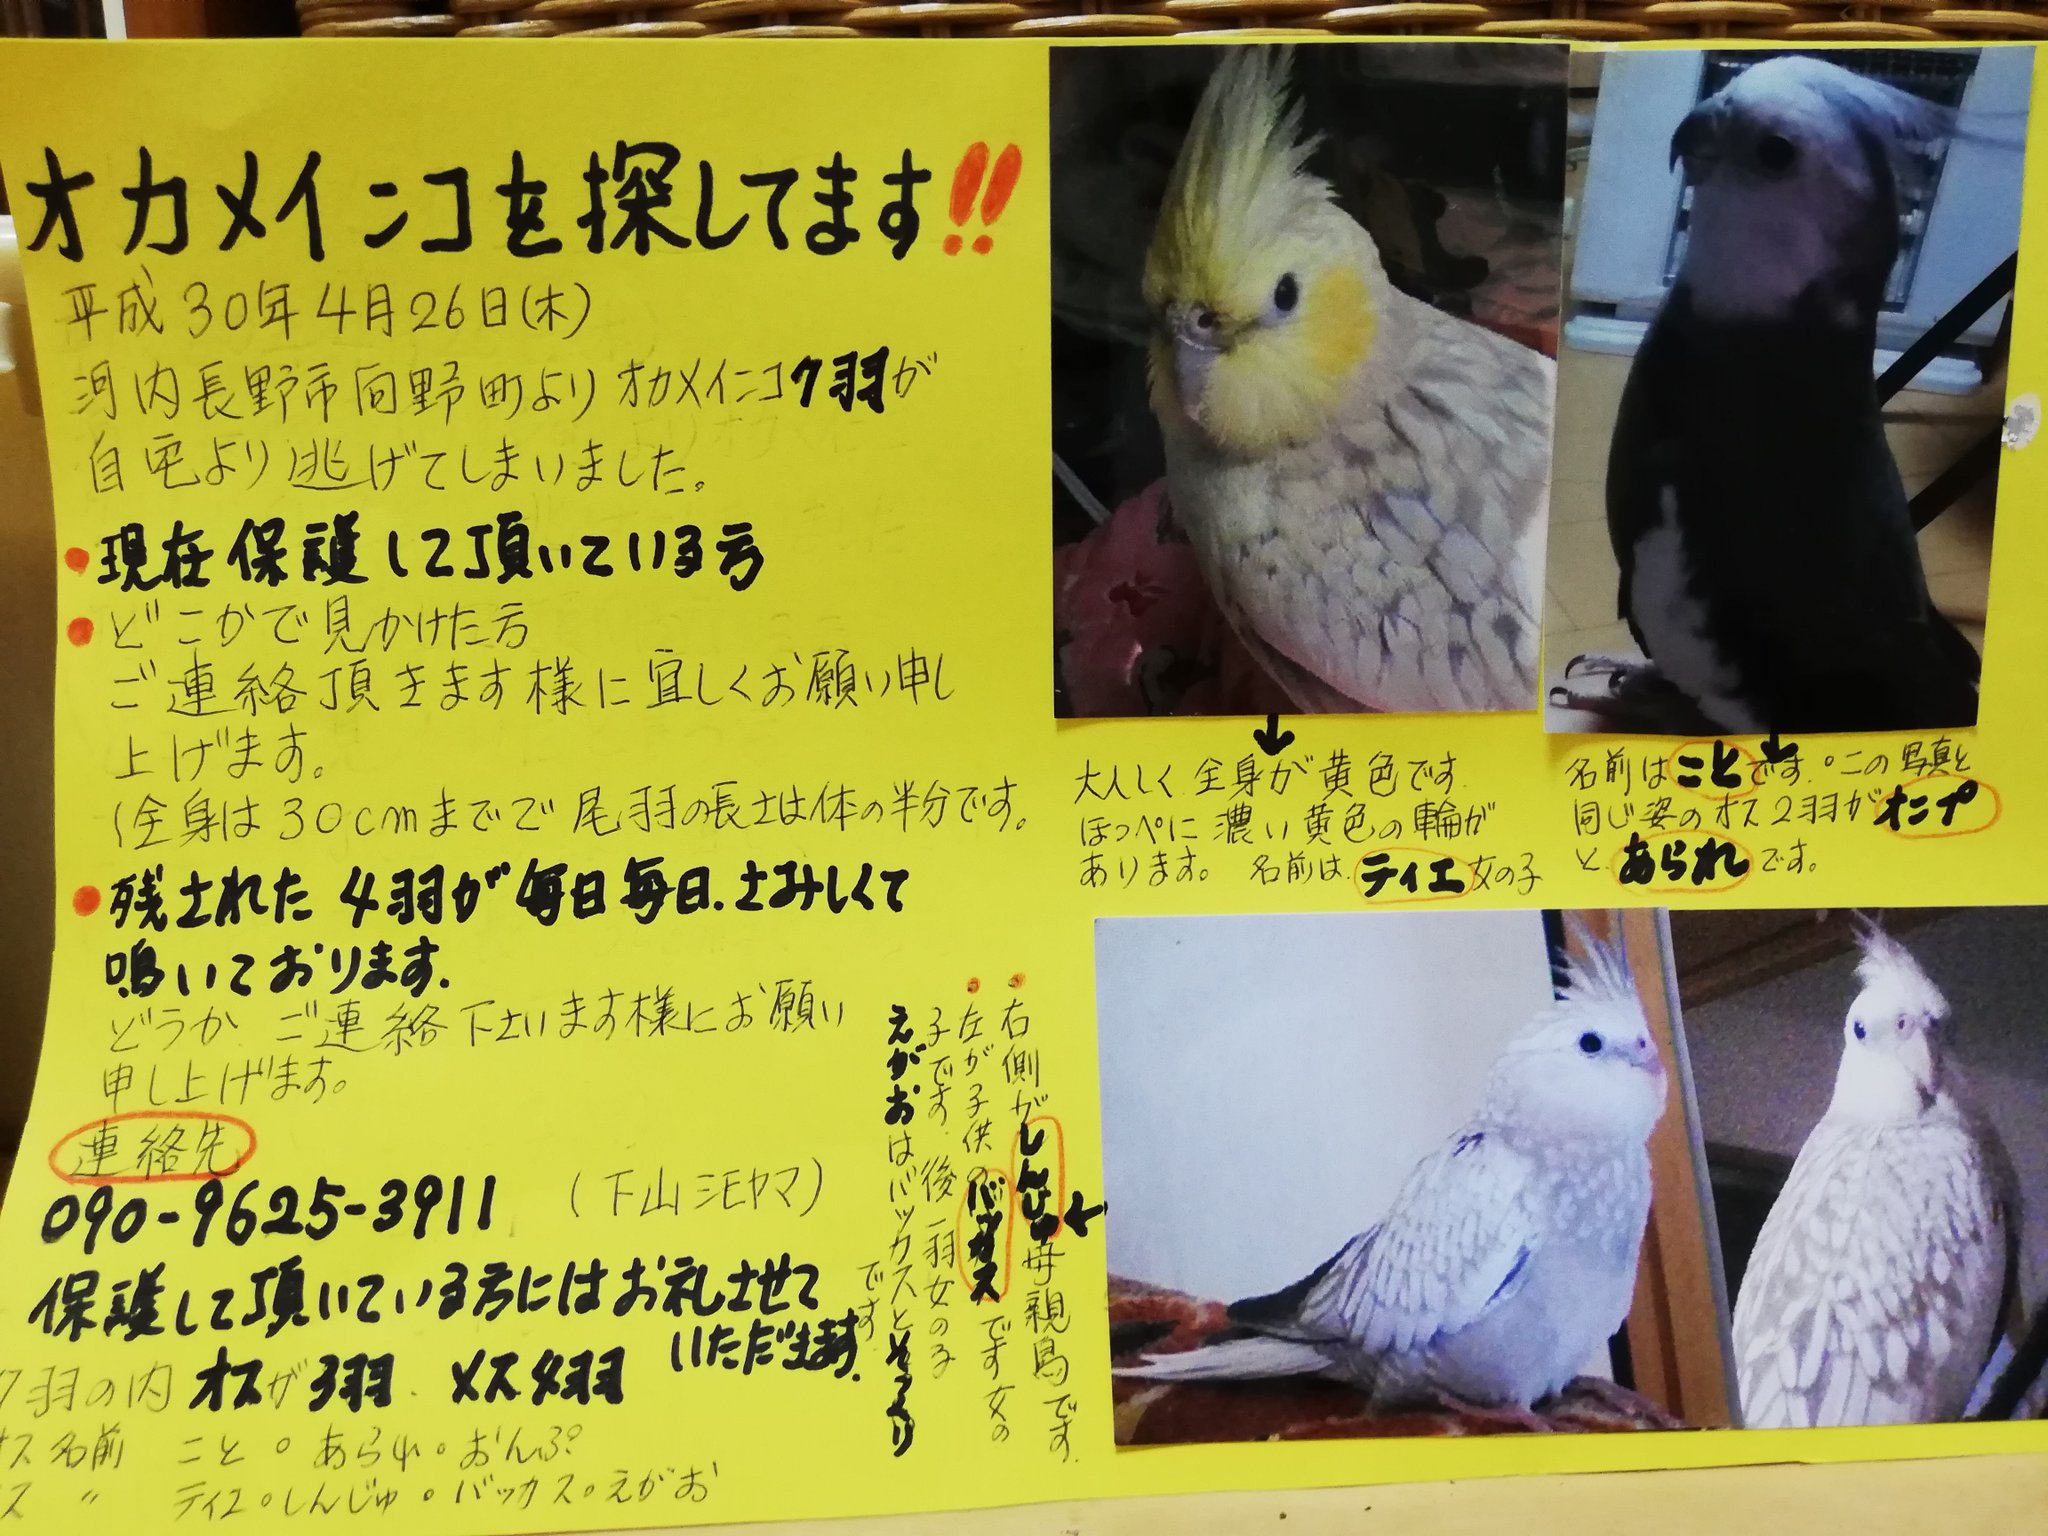 オカメインコを探してます!!
平成30年4月26日(木)
河内長野市向野町よりオカメインコ7羽が
自宅より逃げてしまいました。
• 現在保護して頂いている方
• どこかで見かけた方
ご連絡頂きます様に宜しくお願い申し
上げます。
(全身は30cmまでで尾羽の長さは体の半分です。
• 残された4羽が毎日毎日、さみしくて
鳴いております.
どうか、ご連絡下さいます様にお願い
申し上げます。
連絡先
090-9625-3911 (下山シモヤマ)
保護して頂いている方にはお礼させて
いただきます.
7羽の内オスが3羽、メス4羽
オス名前 こと。あられ。おんぷ
ス 〃 ティエ。しんじゅ。バッカス。えがお
大人しく全身が黄色です.
ほっぺに濃い黄色の輪が
あります。 名前は、ティエ女の子
名前はことです.。この写真と
同じ姿のオス2羽がオンプ
と、あられです。
• 右側がしんじゅ母親鳥です.
• 左が子供のバッカスです女の
子です.後一羽女の子
えがおはバッカスとそっくり
です.